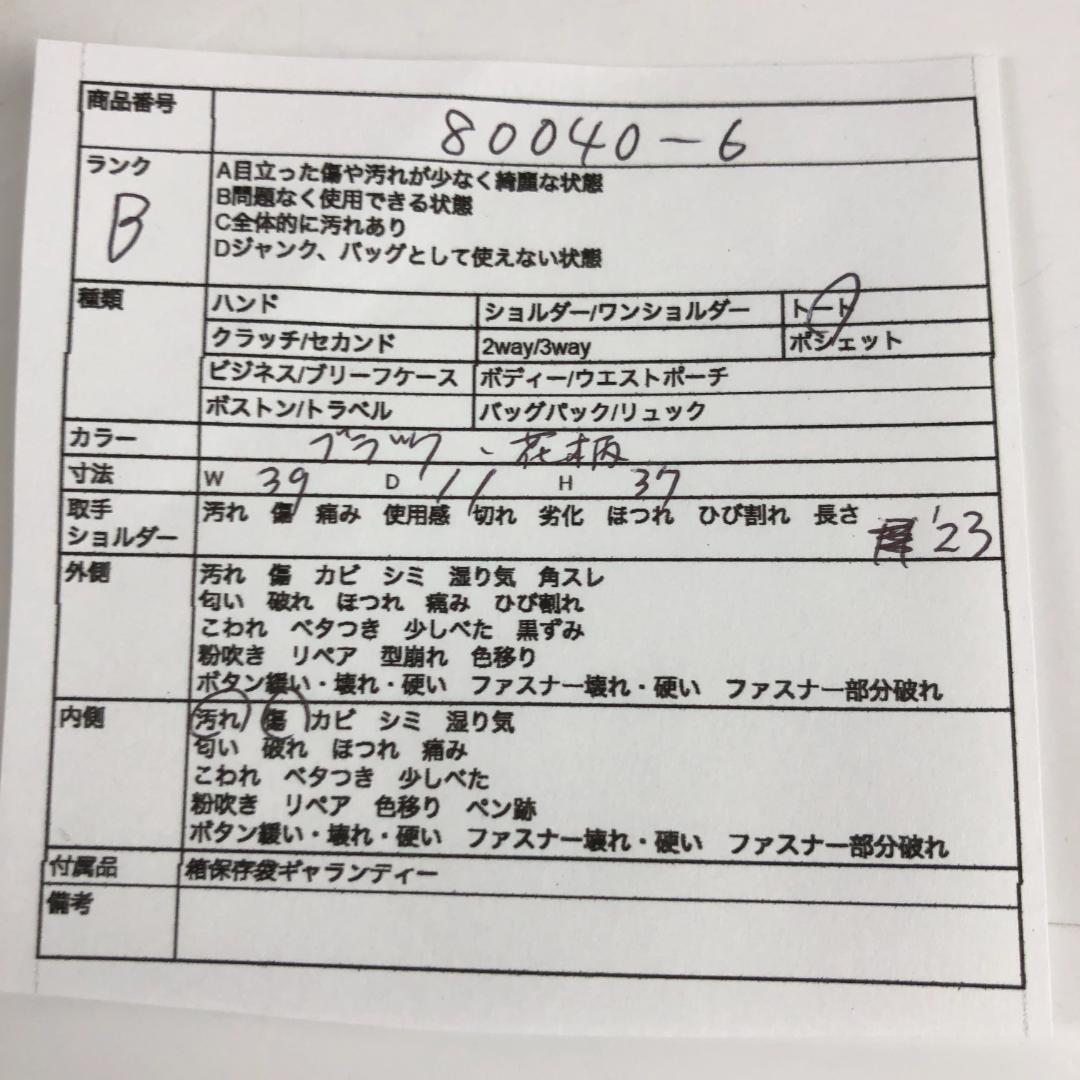 商品番号 80040-6
ランク B
A目立った傷や汚れが少なく綺麗な状態
B問題なく使用できる状態
C全体的に汚れあり
Dジャンク、バッグとして使えない状態
種類 ハンド ショルダー/ワンショルダー トート
クラッチ/セカンド 2way/3way ポシェット
ビジネス/ブリーフケース ボディー/ウエストポーチ
ボストン/トラベル バッグパック/リュック
カラー ブラック、花柄
寸法 W 39 D 11 H 37
取手 汚れ 傷 痛み 使用感 切れ 劣化 ほつれ ひび割れ 長さ
ショルダー '23
外側 汚れ 傷 カビ シミ 湿り気 角スレ
匂い 破れ ほつれ 痛み ひび割れ
こわれ ベタつき 少しべた 黒ずみ
粉吹き リペア 型崩れ 色移り
ボタン緩い・壊れ・硬い ファスナー壊れ・硬い ファスナー部分破れ
内側 汚れ 傷 カビ シミ 湿り気
匂い 破れ ほつれ 痛み
こわれ ベタつき 少しべた
粉吹き リペア 色移り ペン跡
ボタン緩い・壊れ・硬い ファスナー壊れ・硬い ファスナー部分破れ
付属品 箱保存袋ギャランティー
備考